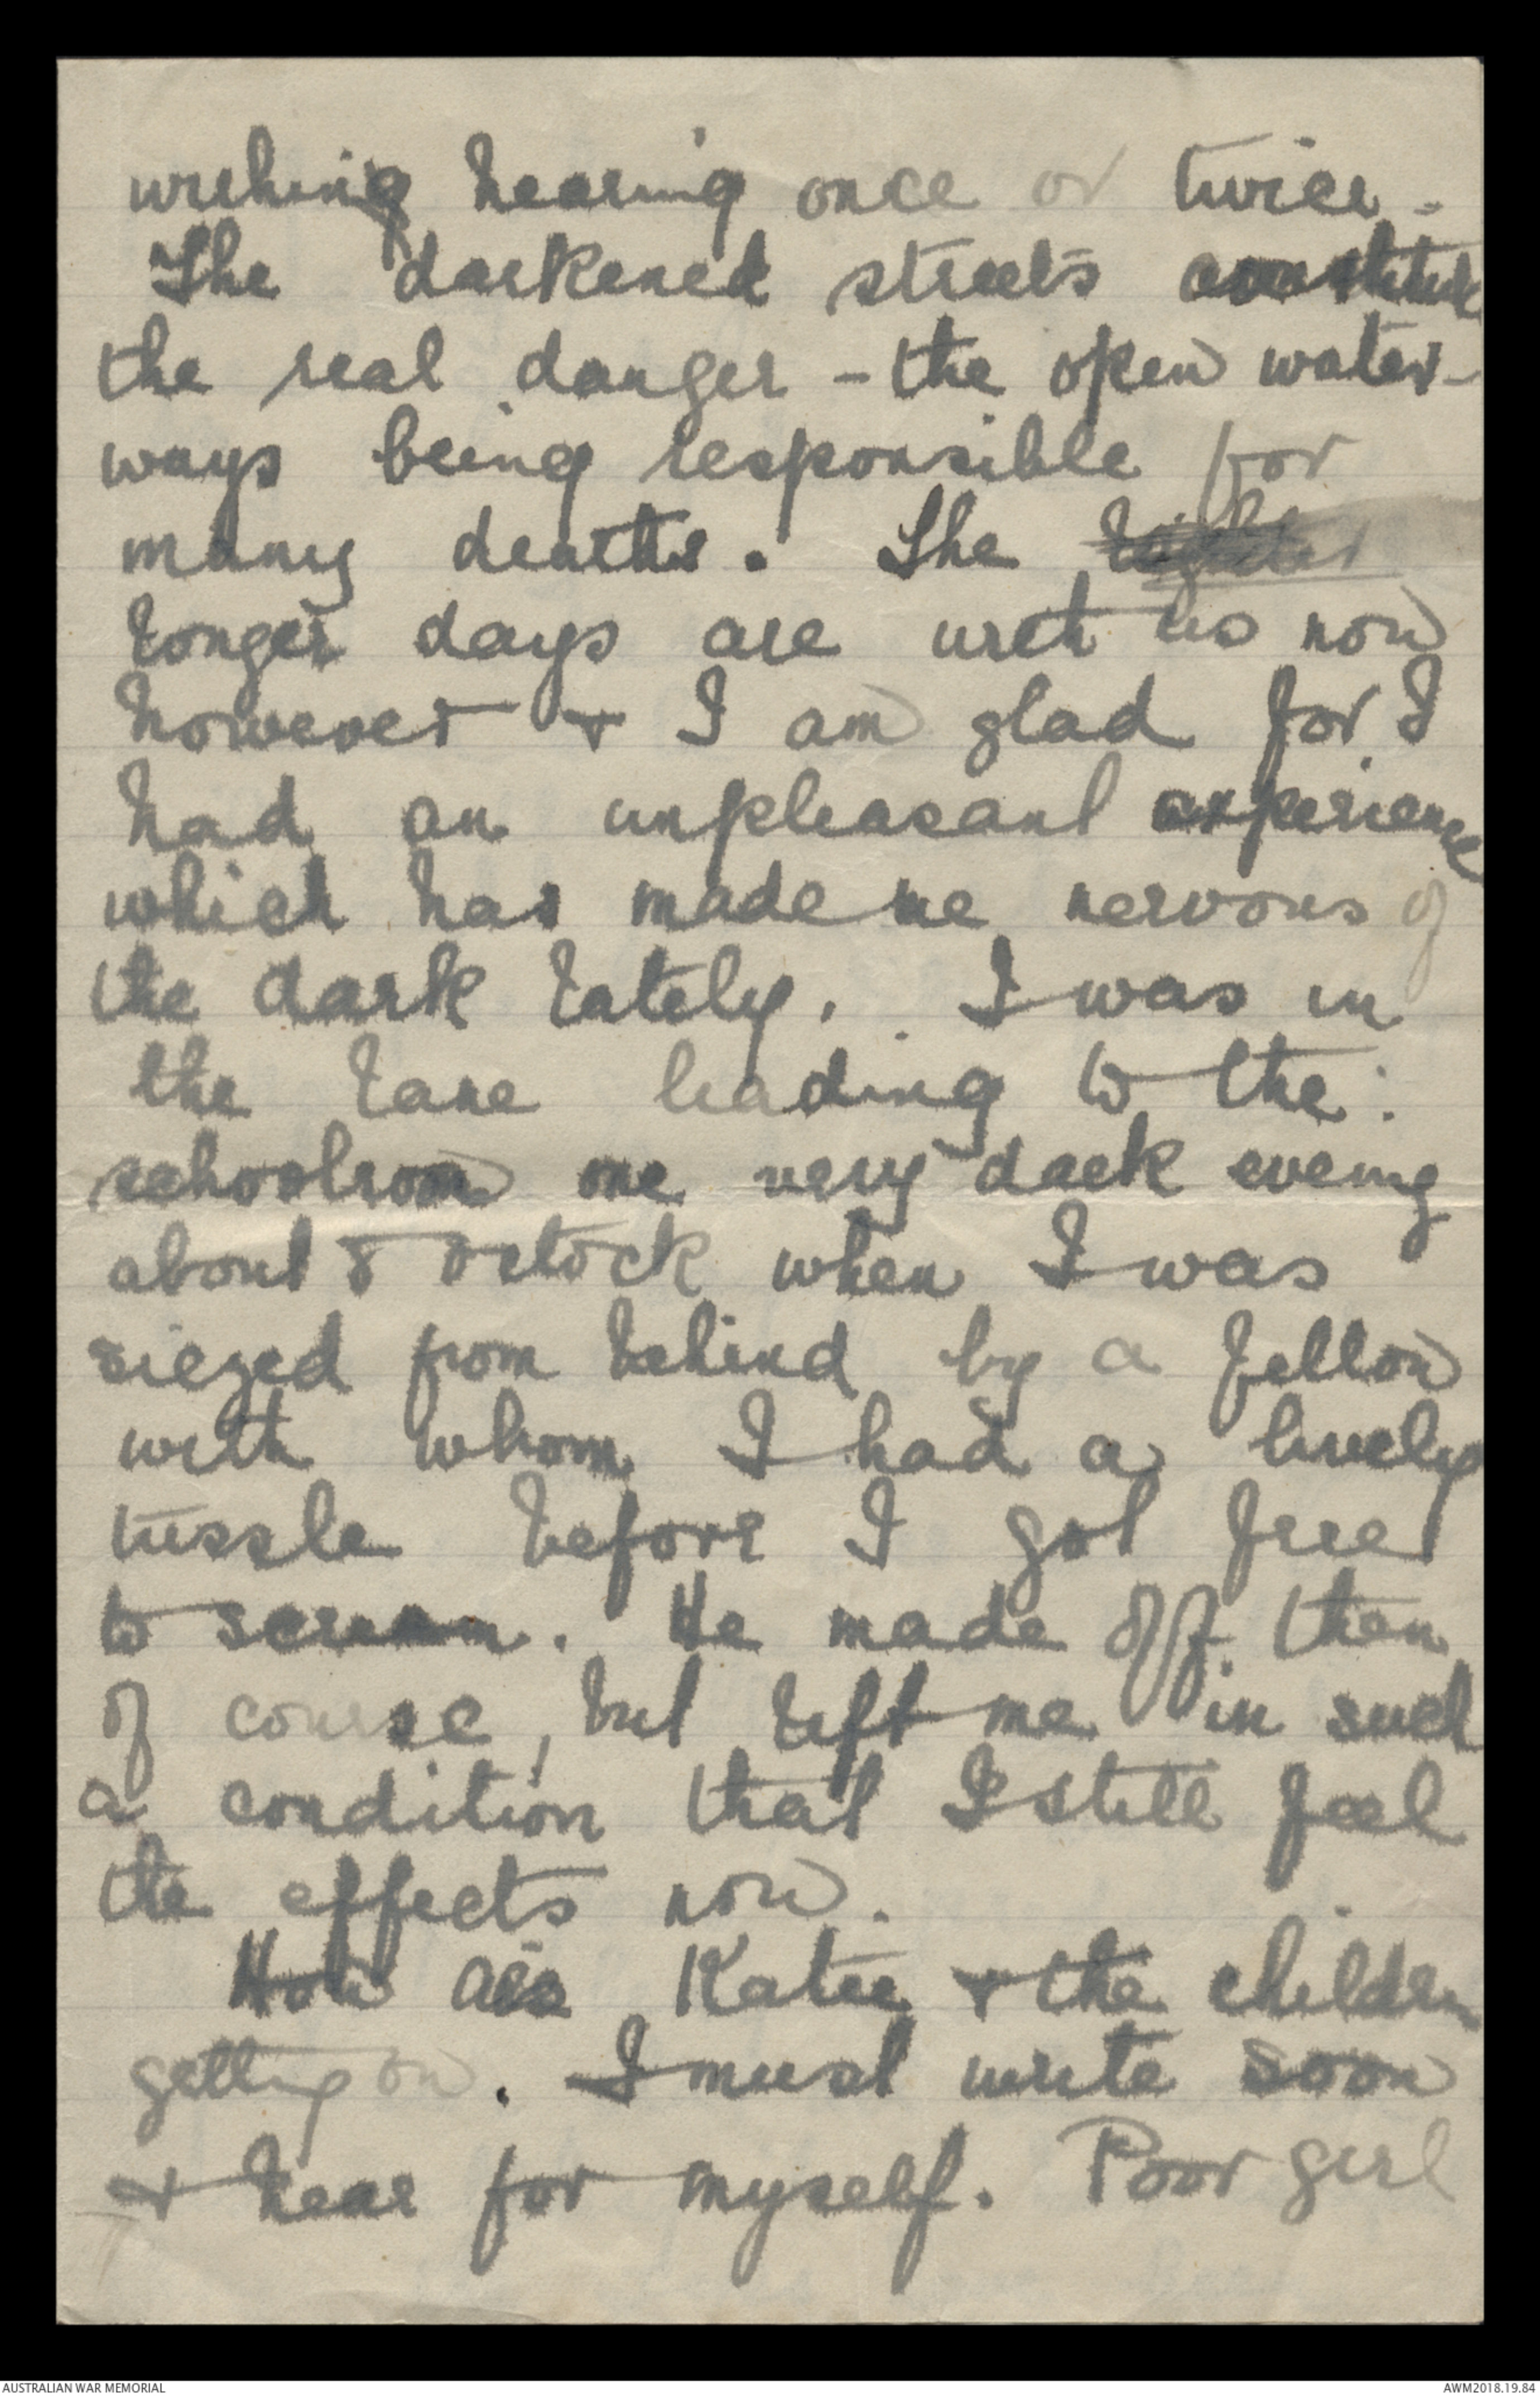 wishing hearing once or twice.
The darkened streets constitute
the real danger - the open water-
ways being responsible for
many deaths. The
longer days are with us now
however & I am glad for I
had an unpleasant experience
which has made me nervous of
the dark lately. I was in
the lane leading to the
schoolroom one very dark eveing
about 8 oclock when I was
siezed from behind by a fellow
with whom I had a lively
tussle before I got free
to scream. He made off then
of course, but left me in such
a condition that I still feel
the effects now.
How are Katie & the children
getting on. I must write soon
& hear for myself. Poor girl
AUSTRALIAN WAR MEMORIAL
AWM2018.19.84